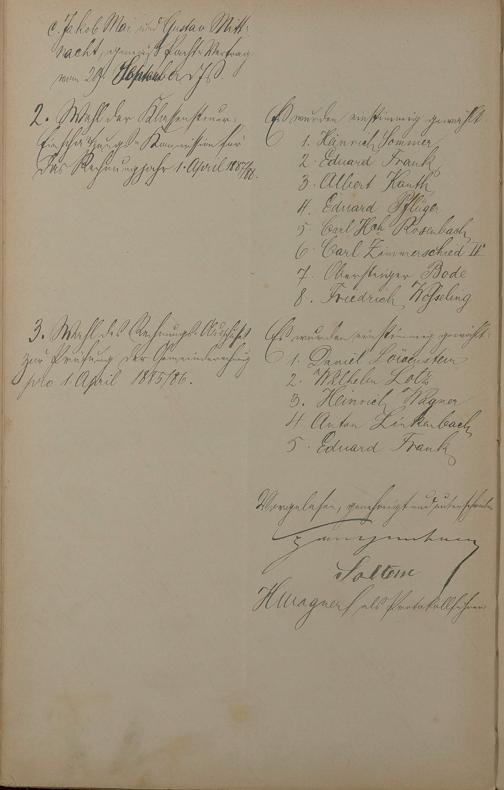 c. Jakob Mai und Gustav Mitt-
nacht, gemäß Pacht-Vertrag
vom 29. September d. Js.
2. Wahl der Klassensteuer-
Einschätzungs-Kommission für
das Rechnungsjahr 1. April 1887/88.
Es wurden einstimmig gewählt
1. Heinrich Sommer
2 Eduard Frank
3. Albert Kauth
4. Eduard Pflüger
5 Carl Hch Rosenbach
6 Carl Zimmerschied II
7. Obersteiger Bode
8. Friedrich
3. Wahl des Rechnungs-Ausschusses
zur Prüfung der Gemeinderechnung
pro 1 April 1885/86.
Es wurden einstimmig gewählt
1. Daniel Löwenstein
2. Wilhelm Lotz
3. Heinrich Wagner
4 Anton Linkenbach
5 Eduard Frank
Vorgelesen, genehmigt und unterschrieben
HWagner als Protokollführer